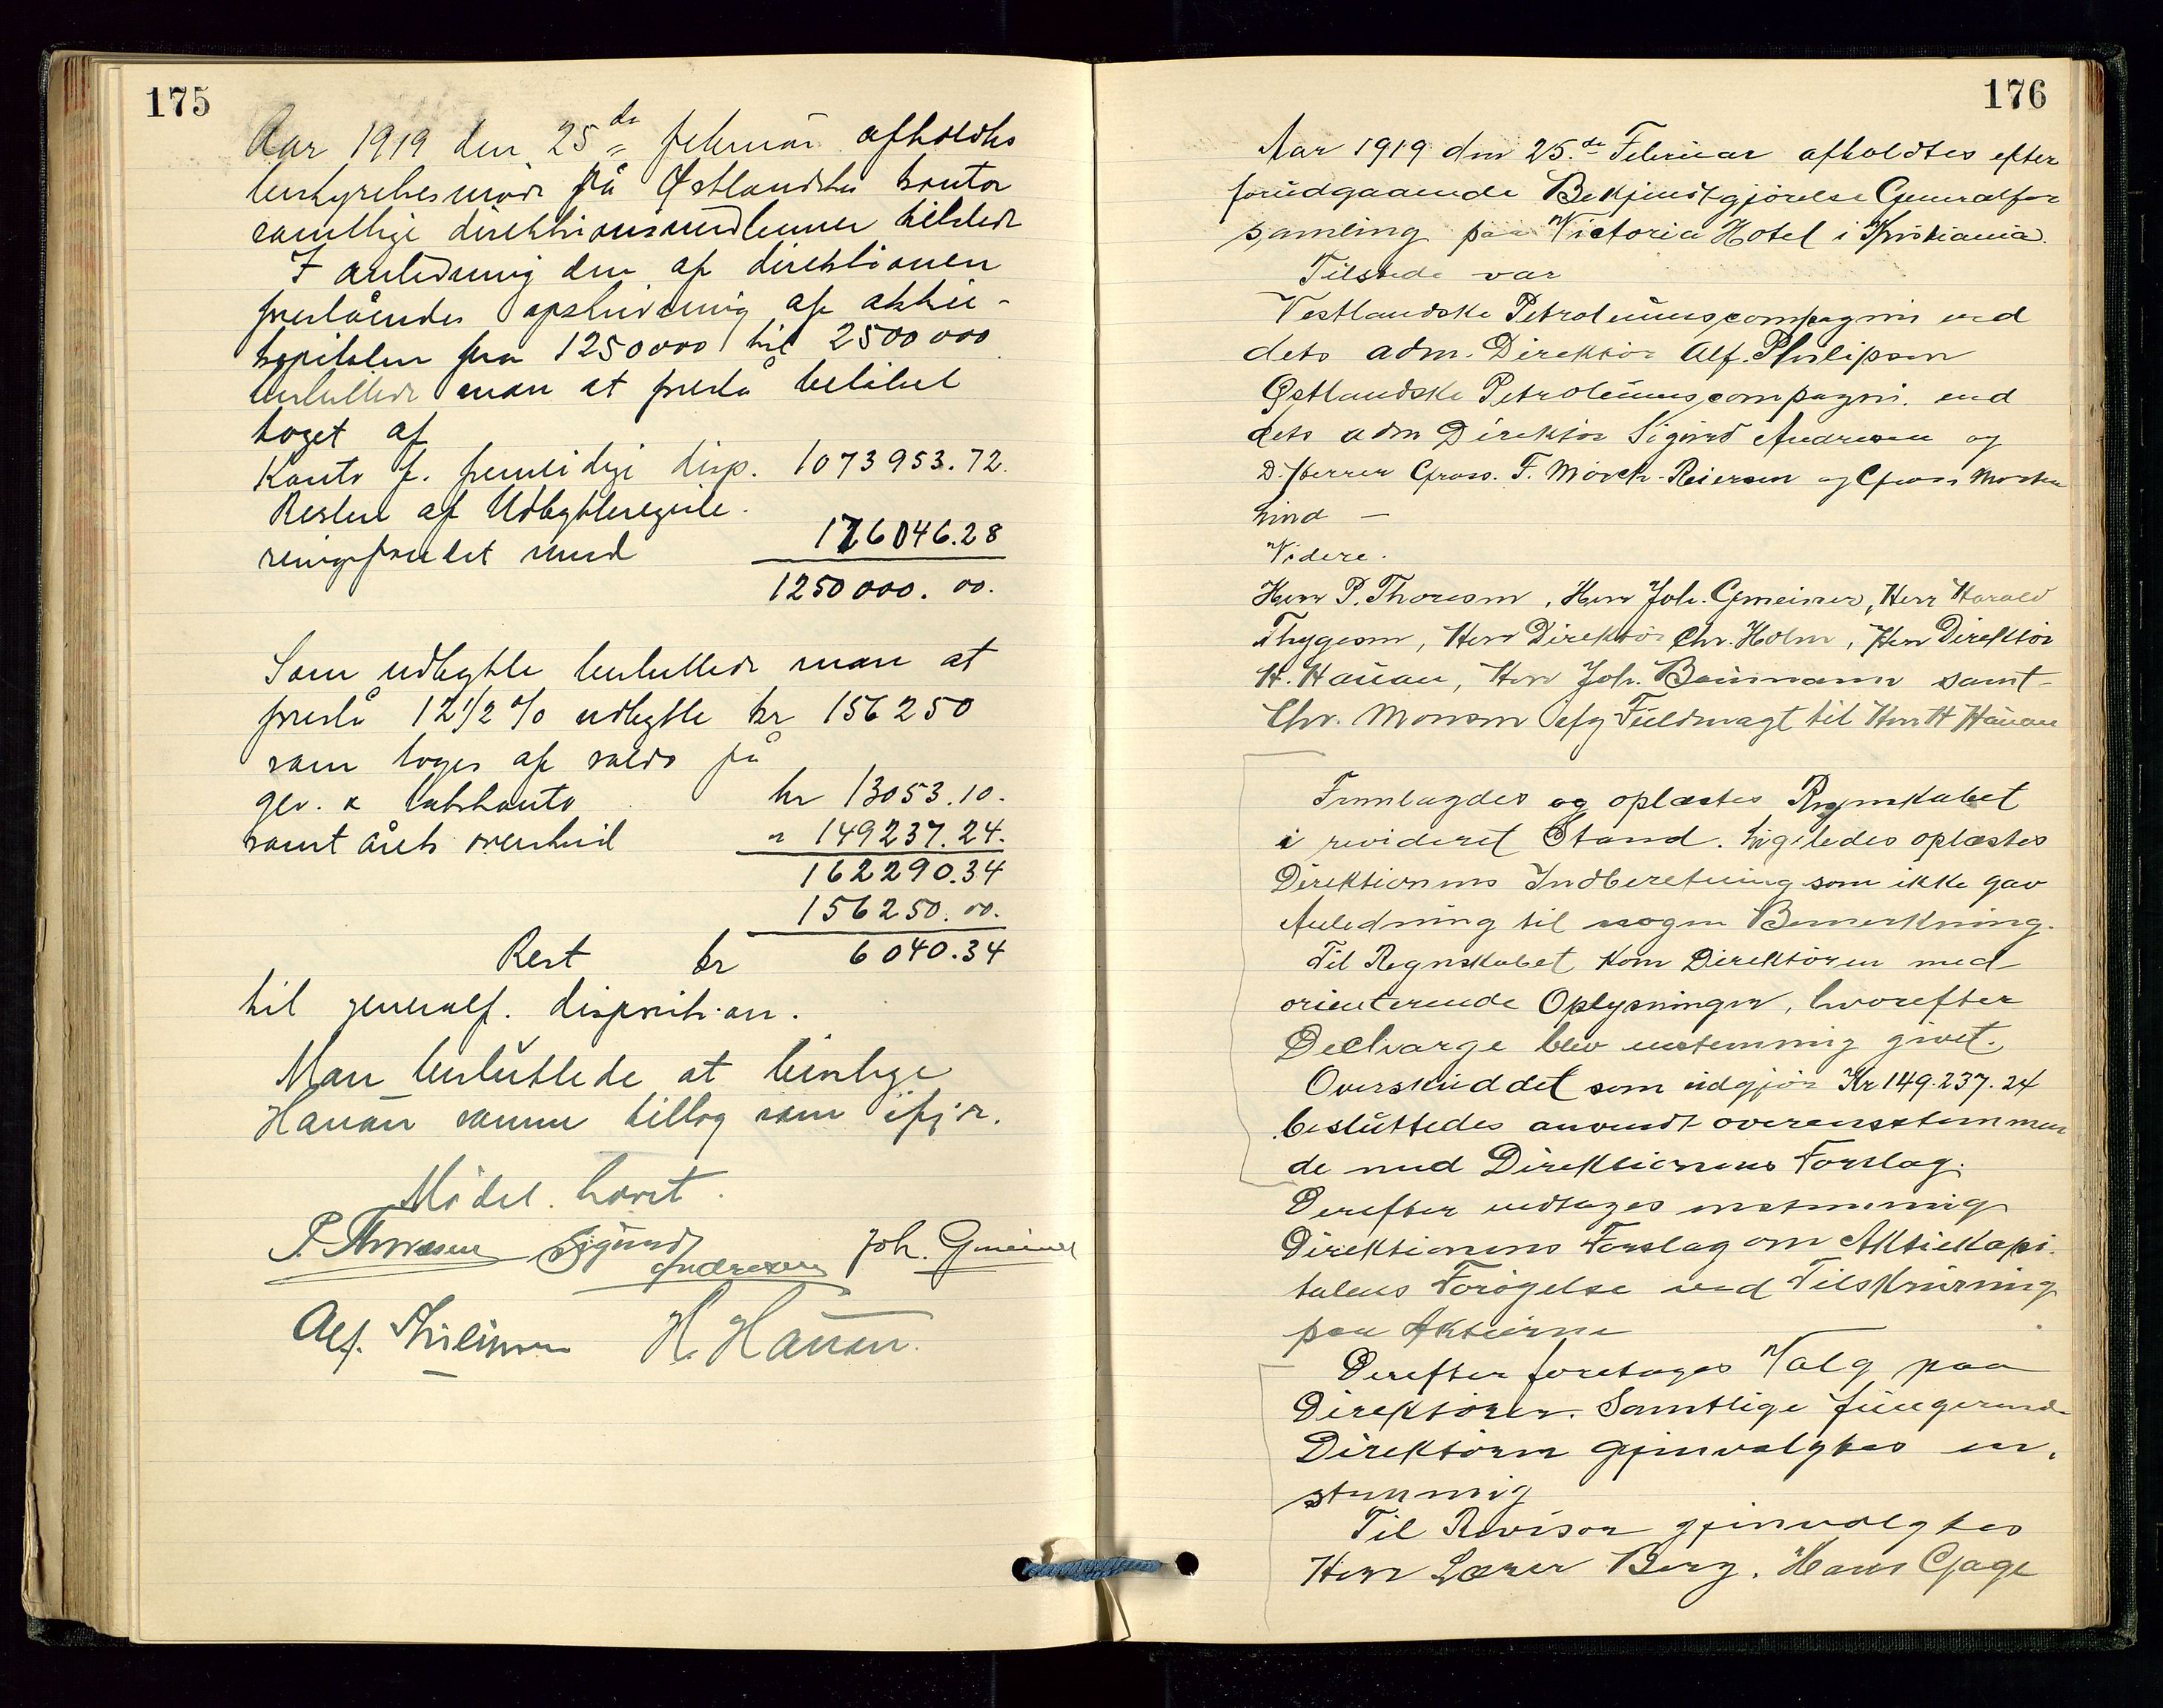 175
Aar 1919 den 25de februar afholdtes
bestyrelsesmöde på Østlandskes kontor
samtlige direktionsmedlemmer tilstede
I anledning den af direktionen
foreslåendes opskrivning af aktie-
kapitalen fra 1250000 til 2500000
besluttede man at foreslå belöbet
toget af
Konto f. fremtidige disp. 1073953.72.
Resten af Udbytteregule-
ringsfondet med 176046.28
1250000.00.
Som udbytte besluttede man at
foreslå 12 1/2 % udbytte kr 156250
som toges af saldo på
gev. & tabskonto kr 13053.10.
samt årets overskud " 149237.24.
162290.34
156250.00.
Rest kr 6040.34
til generalf. disposition.
Man besluttede at bevilge
Hauan samme tillæg som ifjor.
Mödet hævet.
P. Thoresen Sigurd Andresen Joh. Gmeiner
Alf. Philipson H. Hauan.
176
Aar 1919 den 25.de Februar afholdtes efter
forudgaaende Bekjendtgjörelse Generalfor
samling paa Victoria Hotel i Kristiania.
Tilstede var
Vestlandske Petroleumscompagni ved
dets adm. Direktör Alf. Philipson
Østlandske Petroleumscompagni ved
dets adm Direktör Sigurd Andresen og
D'Herrer Gross. F. Mörch-Reiersen og Gross
Videre.
Herr P. Thoresen, Herr Joh. Gmeiner, Herr Harald
Thygesen, Herr Direktör Chr. Holm, Herr Direktör
H. Hauan, Herr Joh. Baumann samt
Chr. Monsen efg Fuldmagt til Herr H Hauan
Fremlagdes og oplæstes Regnskabet
i revideret Stand. Ligeledes oplæstes
Direktionens Indberetning som ikke gav
Anledning til nogen Bemerkning.
Til Regnskabet kom Direktören med
orienterende Oplysninger, hvorefter
Decharge blev enstemmig givet.
Overskuddet som udgjör Kr 149.237.24
besluttedes anvendt overensstemmen
de med Direktionens Forslag.
Derefter vedtoges enstemmig
Direktionens Forslag om Aktiekapi-
talens Forögelse ved Tilskrivning
paa Aktierne
Derefter foretoges Valg paa
Direktörer. Samtlige fungerende
Direktörer gjenvalgtes en-
stemmig
Til Revisor gjenvalgtes
Herr Lærer Berg. Hans Gage